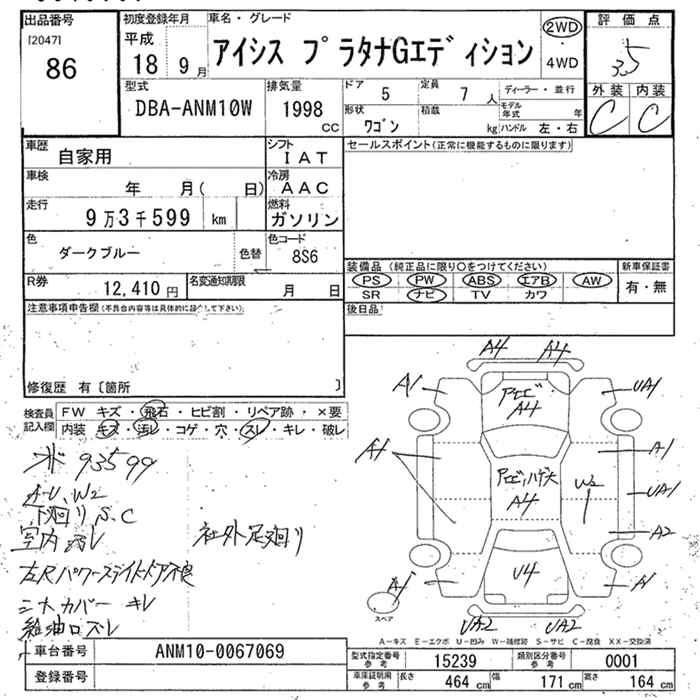 出品番号
[2047]
86
初度登録年月
平成
18 9月
車名・グレード
アイシス プラタナGエディション
2WD
・
4WD
評価点
3.5
外装 内装
C C
型式
DBA-ANM10W
排気量
1998
CC
ドア 5
定員 7 人
形状
ワゴン
積載
kg
ディーラー・並行
モデル年式 年
ハンドル 左・右
車歴
自家用
シフト
IAT
車検
年 月( 日)
冷房
AAC
走行
9万3千599 km
燃料
ガソリン
色
ダークブルー
色替
色コード
8S6
R券
12,410 円
名変通知期限
月 日
セールスポイント(正常に機能するものに限ります)
装備品 (純正品に限り○をつけてください)
PS PW ABS エアB AW
SR ナビ TV カワ
新車保証書
有・無
後日品
注意事項申告欄(不具合内容等は具体的に記入して下さい)
修復歴 有〔箇所 〕
検査員記入欄
FW キズ・飛石・ヒビ割・リペア跡・×要
内装 キズ・汚レ・コゲ・穴・スレ・キレ・破レ
93599
A-U、W2
下廻りS、C
室内汚レ
社外足廻り
左Rパワースライドドア不良
シートカバー キレ
給油口ズレ
A4 A4
A1 UA1
アエビ
A4
A1 A1
アエビ、ハゲ大
A4
W2
UA1
A2
U4
A1 A1
スペア
UA2 UA2
A－キズ E－エクボ U－凹み W－補修跡 S－サビ C－腐食 XX－交換済
車台番号 ANM10-0067069
登録番号
型式指定番号
参考
15239
類別区分番号
参考
0001
車庫証明用
参考
長さ 464 cm
幅 171 cm
高さ 164 cm